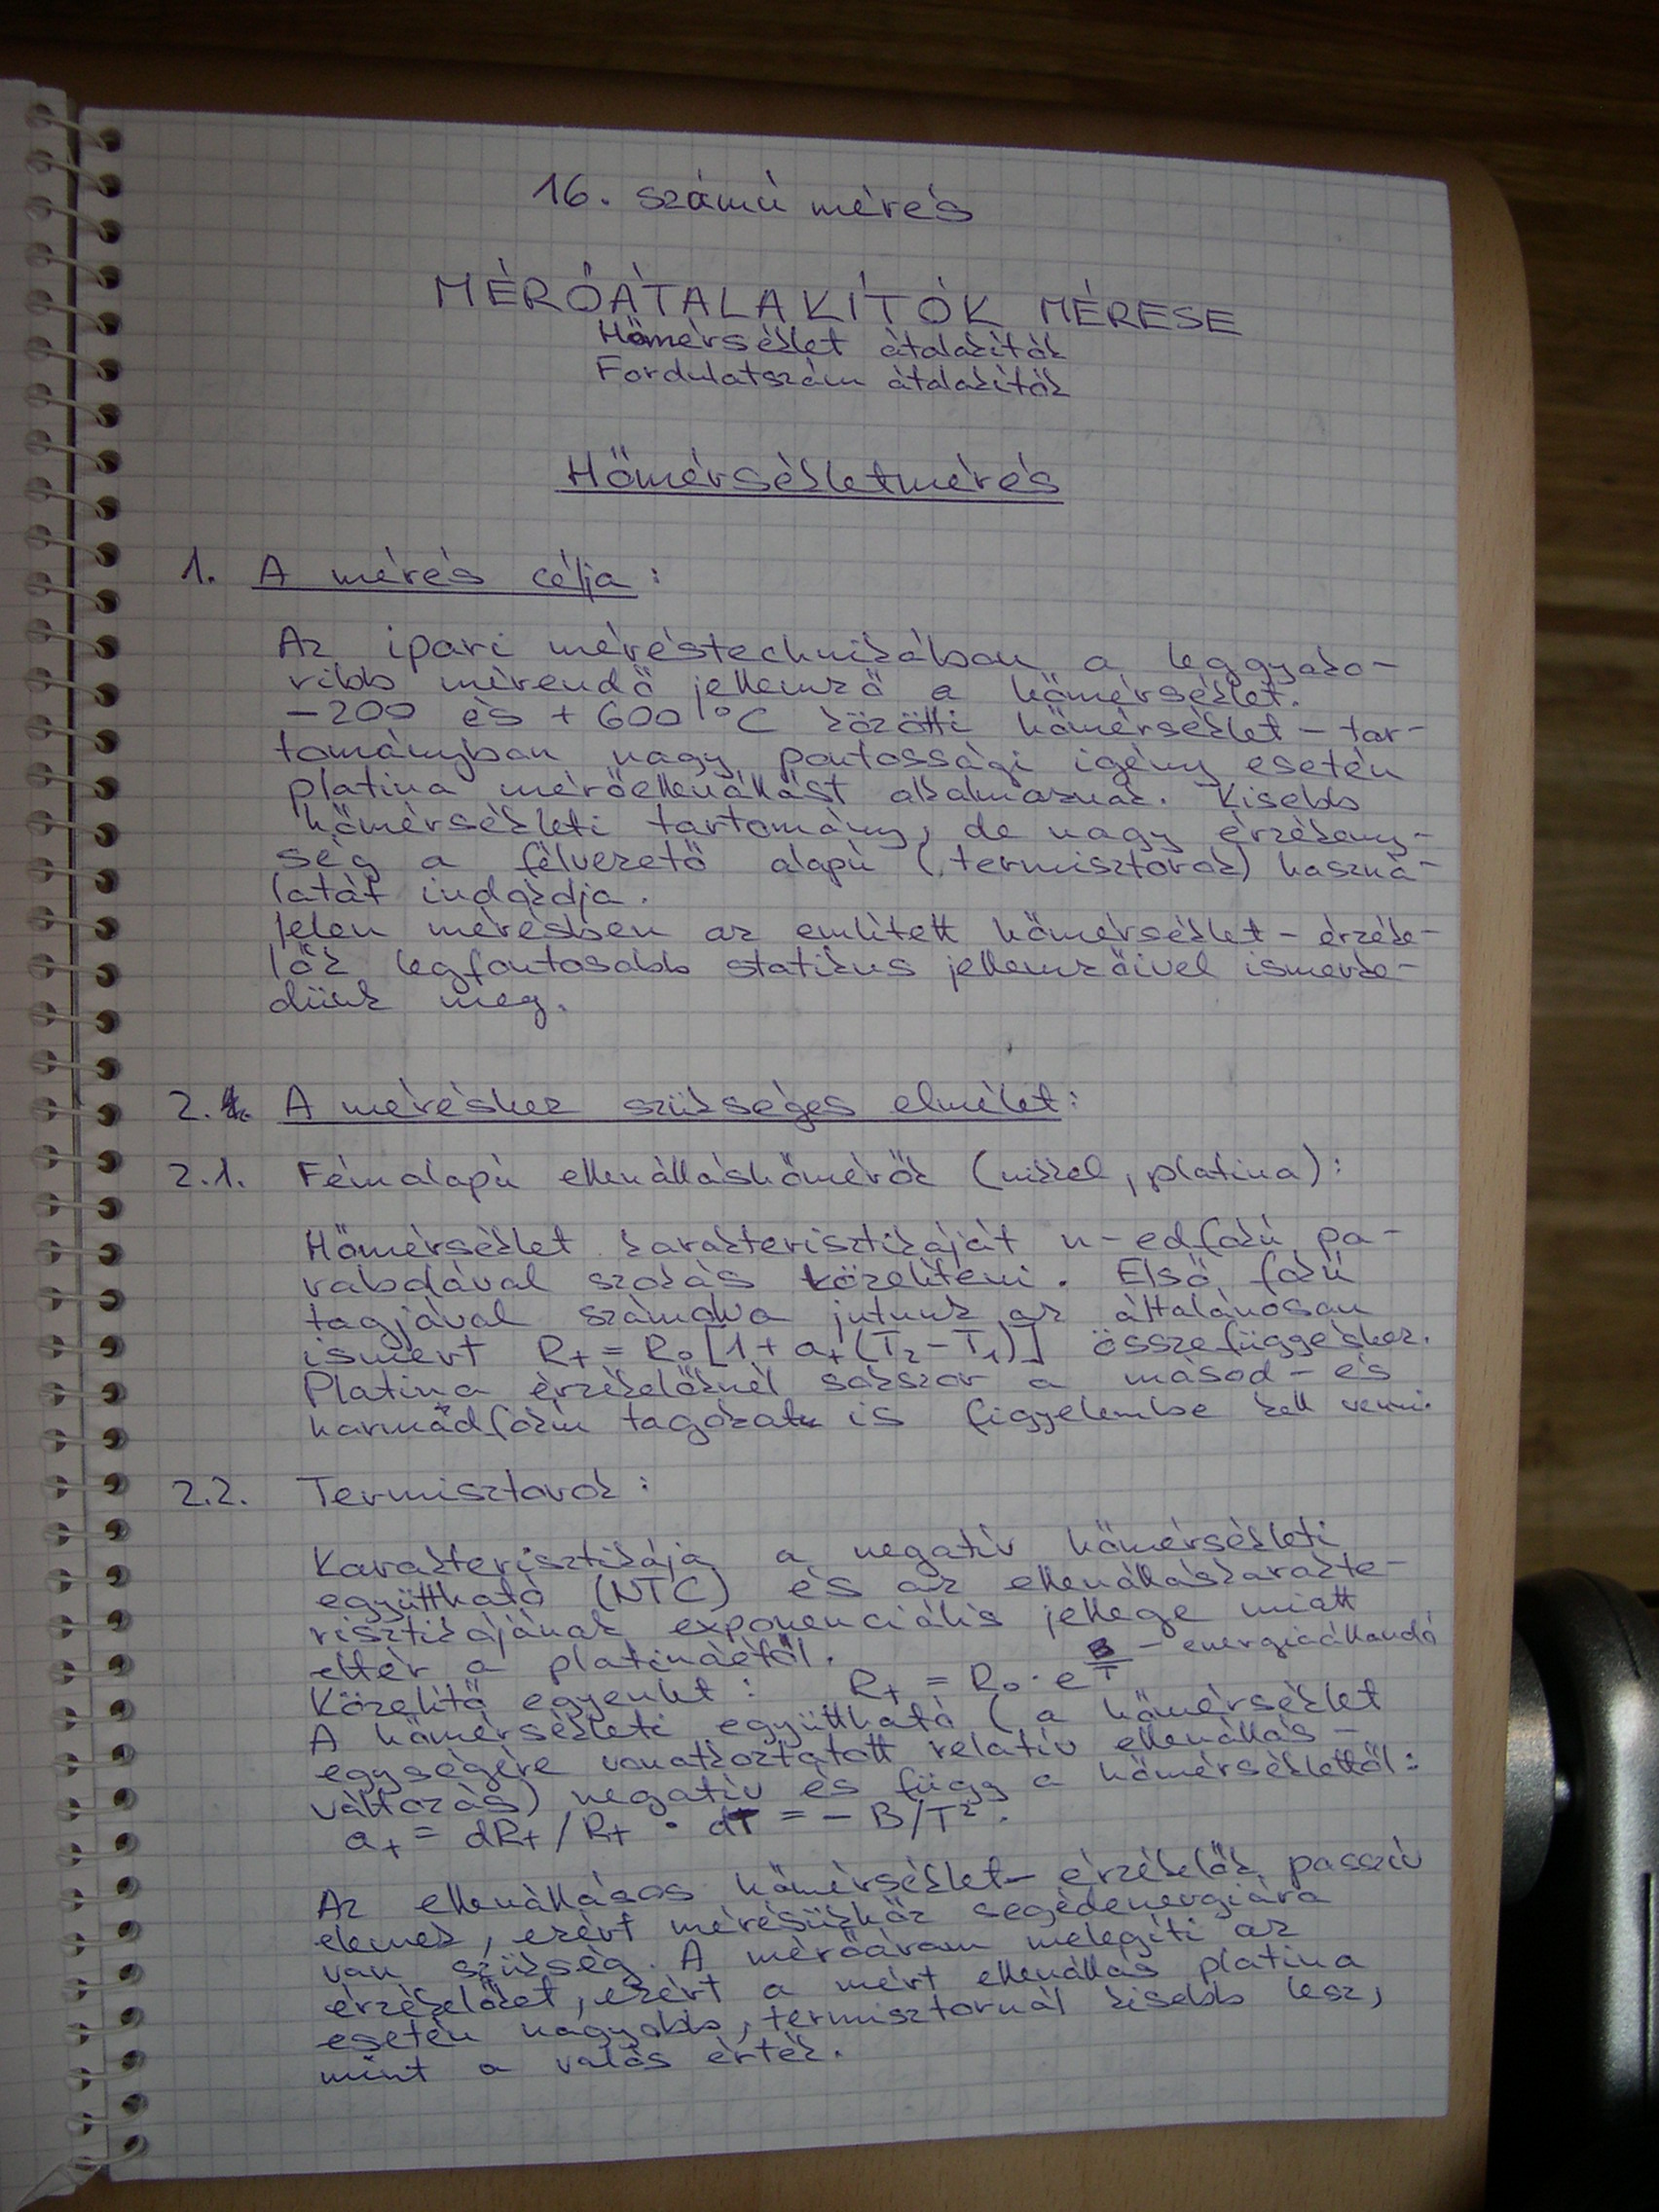 16. számú mérés
MÉRŐÁTALAKÍTÓK MÉRÉSE
Hőmérséklet átalakítók
Fordulatszám átalakítók
Hőmérsékletmérés
1. A mérés célja:
Az ipari méréstechnikában a leggyako-
ribb mérendő jellemző a hőmérséklet.
-200 és +600 °C közötti hőmérséklet-tar-
tományban nagy pontossági igény esetén
platina mérőellenállást alkalmaznak. Kisebb
hőmérsékleti tartomány, de nagy érzékeny-
ség a félvezető alapú (termisztorok) haszná-
latát indokolja.
Jelen mérésben az említett hőmérséklet-érzéke-
lők legfontosabb statikus jellemzőivel ismerke-
dünk meg.
2. A méréshez szükséges elmélet:
2.1. Fémalapú ellenálláshőmérők (nikkel, platina):
Hőmérséklet karakterisztikáját n-edfokú pa-
rabolával szokás közelíteni. Első fokú
tagjával számolva jutunk az általánosan
ismert R_t = R_0 [1 + a_t (T_2 - T_1)] összefüggéshez.
Platina érzékelőknél sokszor a másod- és
harmadfokú tagokat is figyelembe kell venni.
2.2. Termisztorok:
Karakterisztikája a negatív hőmérsékleti
együttható (NTC) és az ellenálláskarakte-
risztikájának exponenciális jellege miatt
eltér a platináétól.
Közelítő egyenlet: R_t = R_0 · e^(B/T) B - energiaállandó
A hőmérsékleti együttható (a hőmérséklet
egységére vonatkoztatott relatív ellenállás-
változás) negatív és függ a hőmérséklettől:
a_t = dR_t / R_t · dT = - B/T².
Az ellenállásos hőmérséklet-érzékelők passzív
elemek, ezért mérésükhöz segédenergiára
van szükség. A mérőáram melegíti az
érzékelőket, ezért a mért ellenállás platina
esetén nagyobb, termisztornál kisebb lesz,
mint a valós érték.